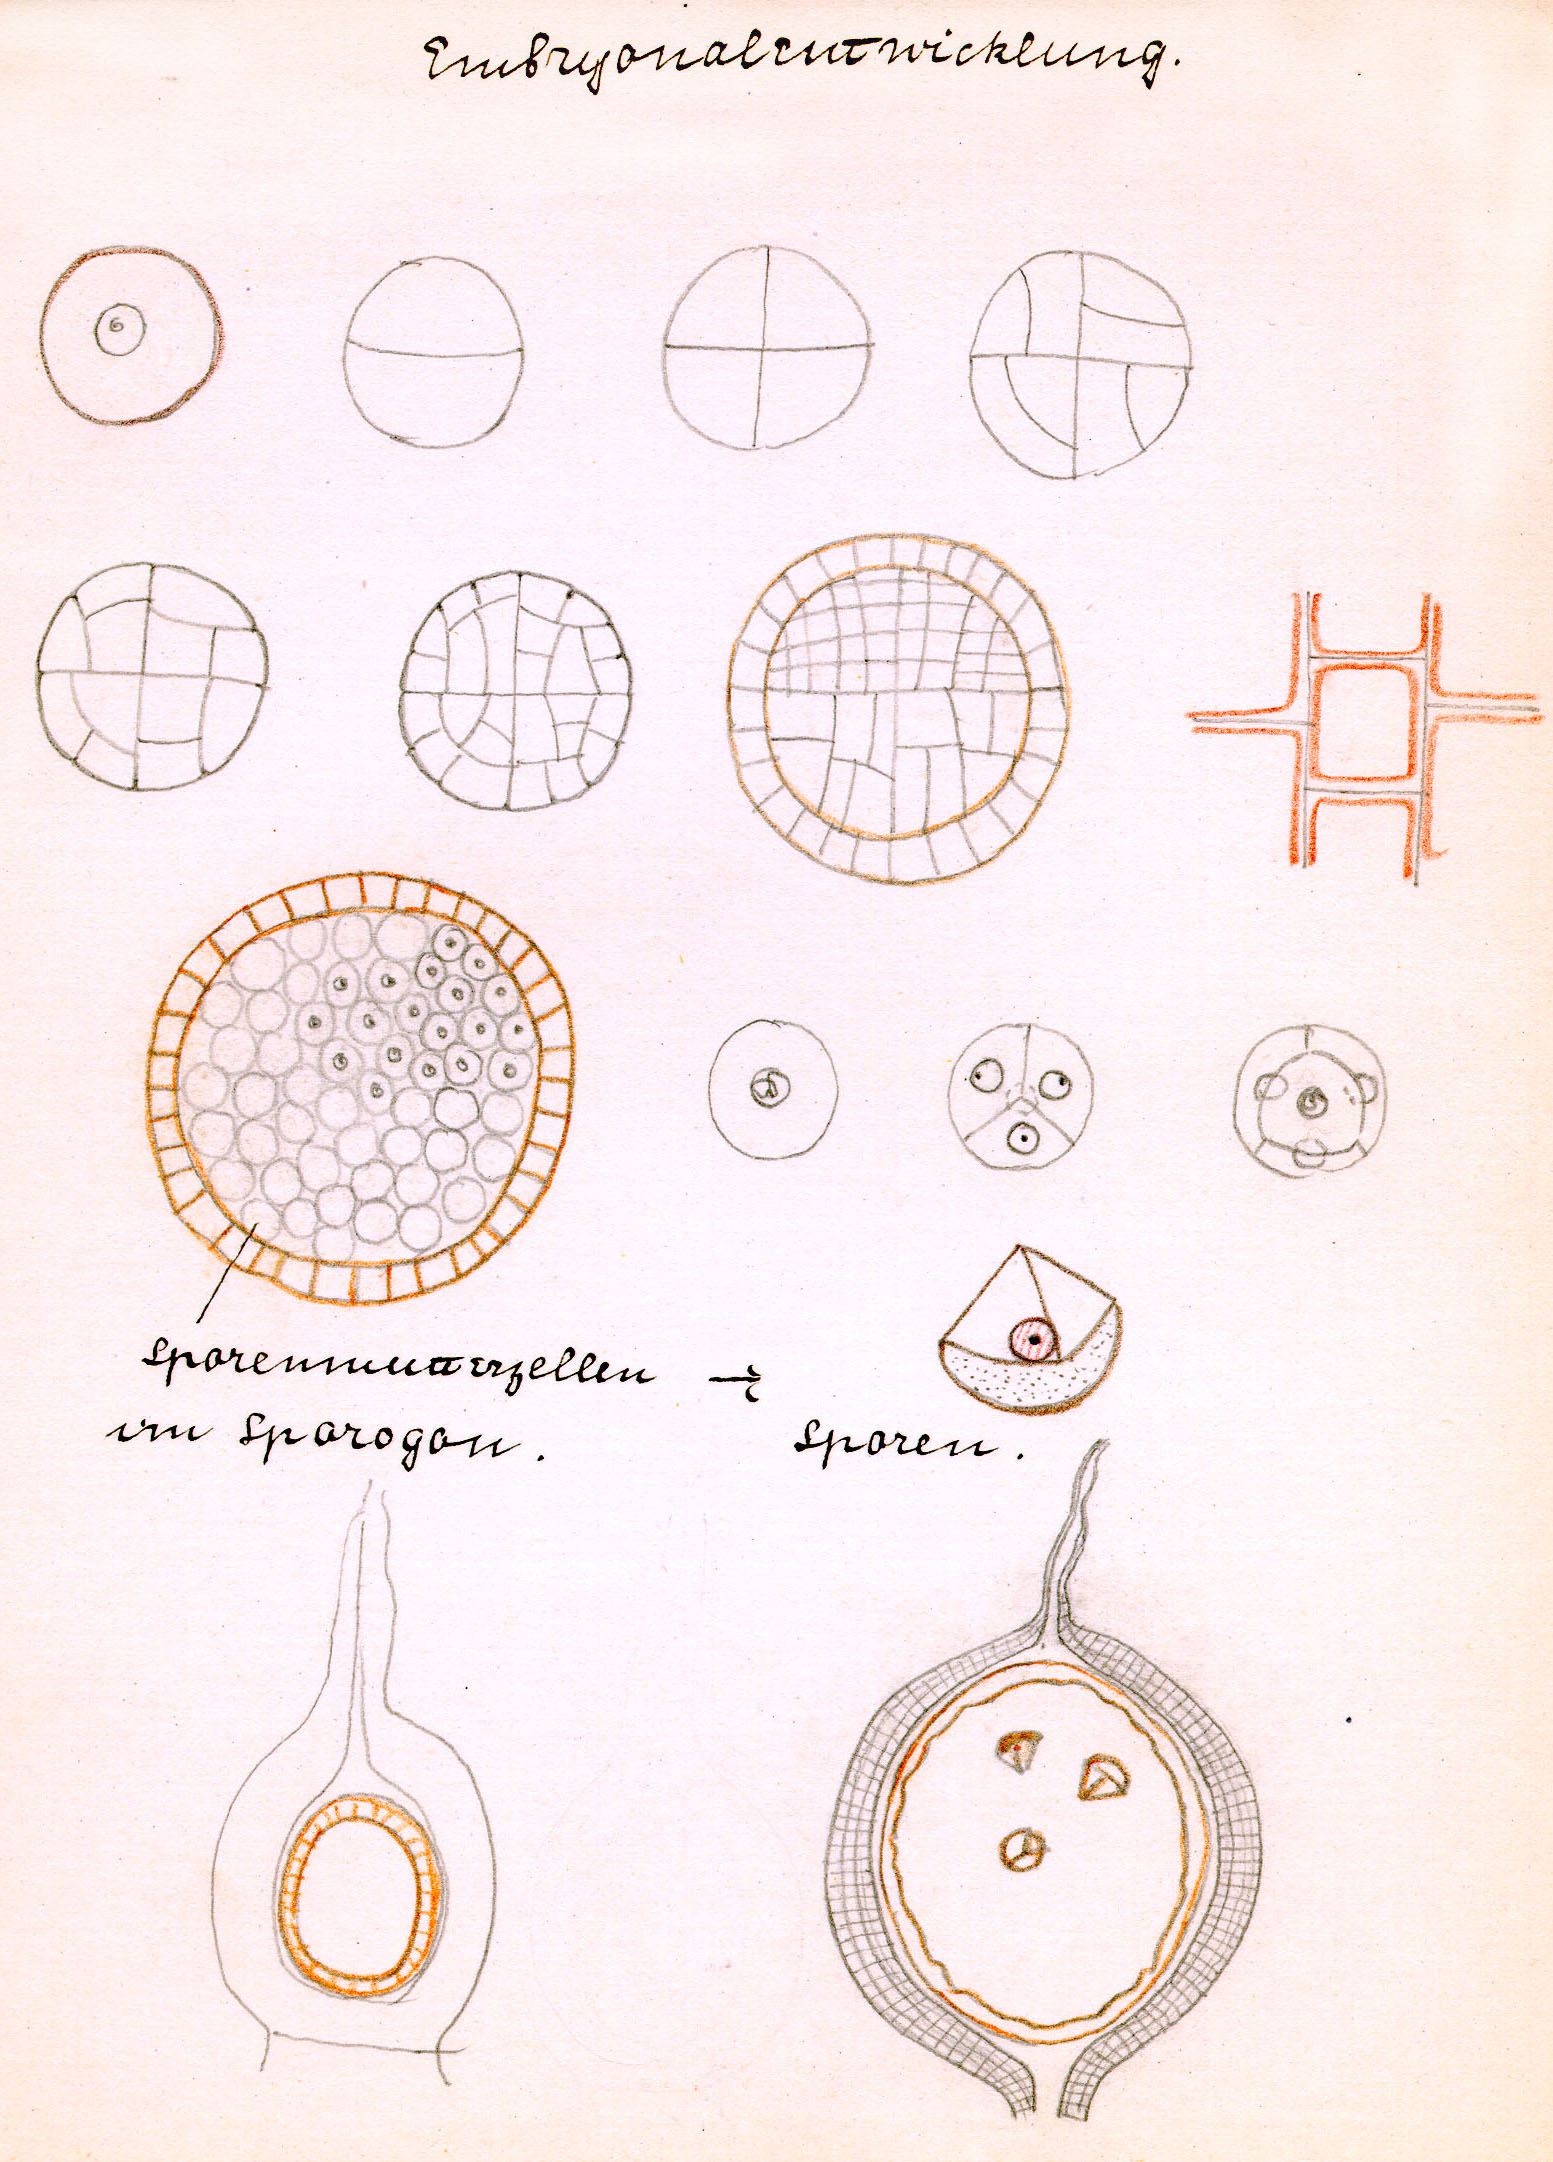 Embryonalentwicklung.
Sporenmutterzellen →
im Sporogon.
Sporen.